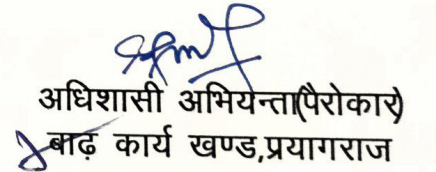 अधिशासी अभियन्ता(पैरोकार)
बाढ़ कार्य खण्ड,प्रयागराज